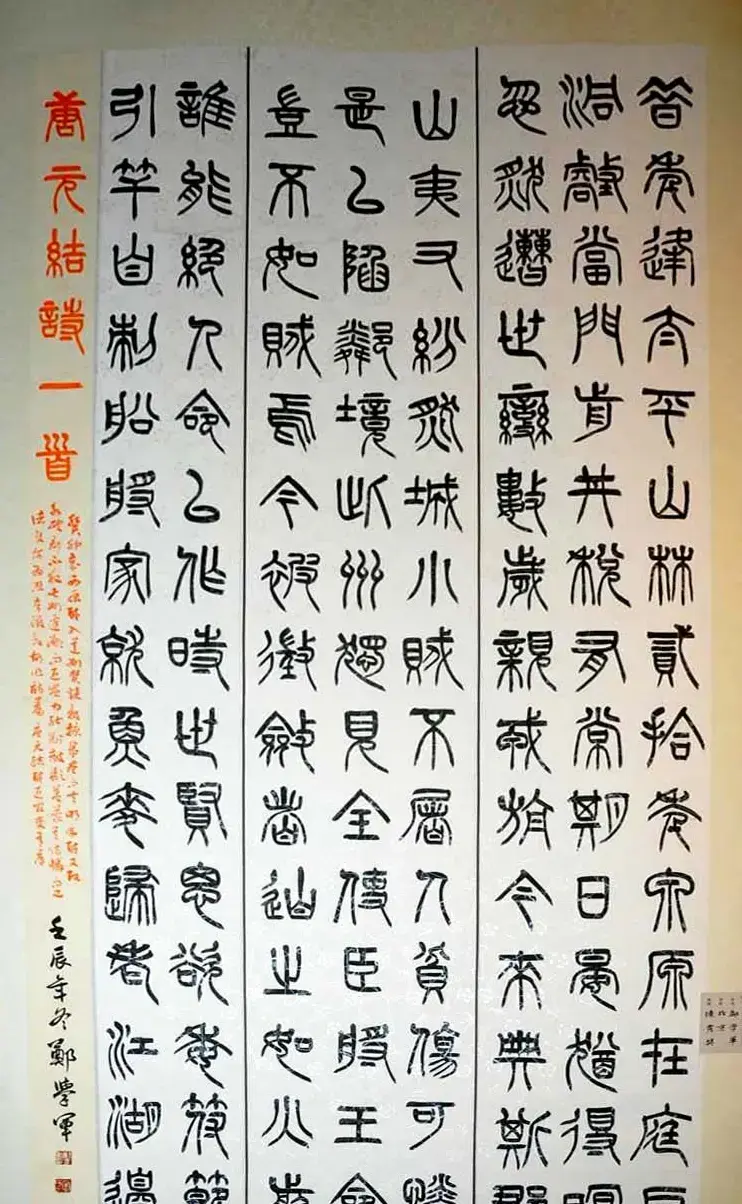 昔年逢太平山林貳拾年泉原在庭
洞壑當門前井税有常期日晏猶得眠
忽然遭世變數歲親戎旃今來典斯郡
山夷又紛然城小賊不屠人貧傷可憐
是以陷鄰境此州獨見全使臣將王命
豈不如賊焉今被徵斂者迫之如火煎
誰能絕人命以作時世賢思欲委符節
引竿自刺船將家就魚麥歸老江湖邊
唐元結詩一首
壬辰年冬鄭學軍